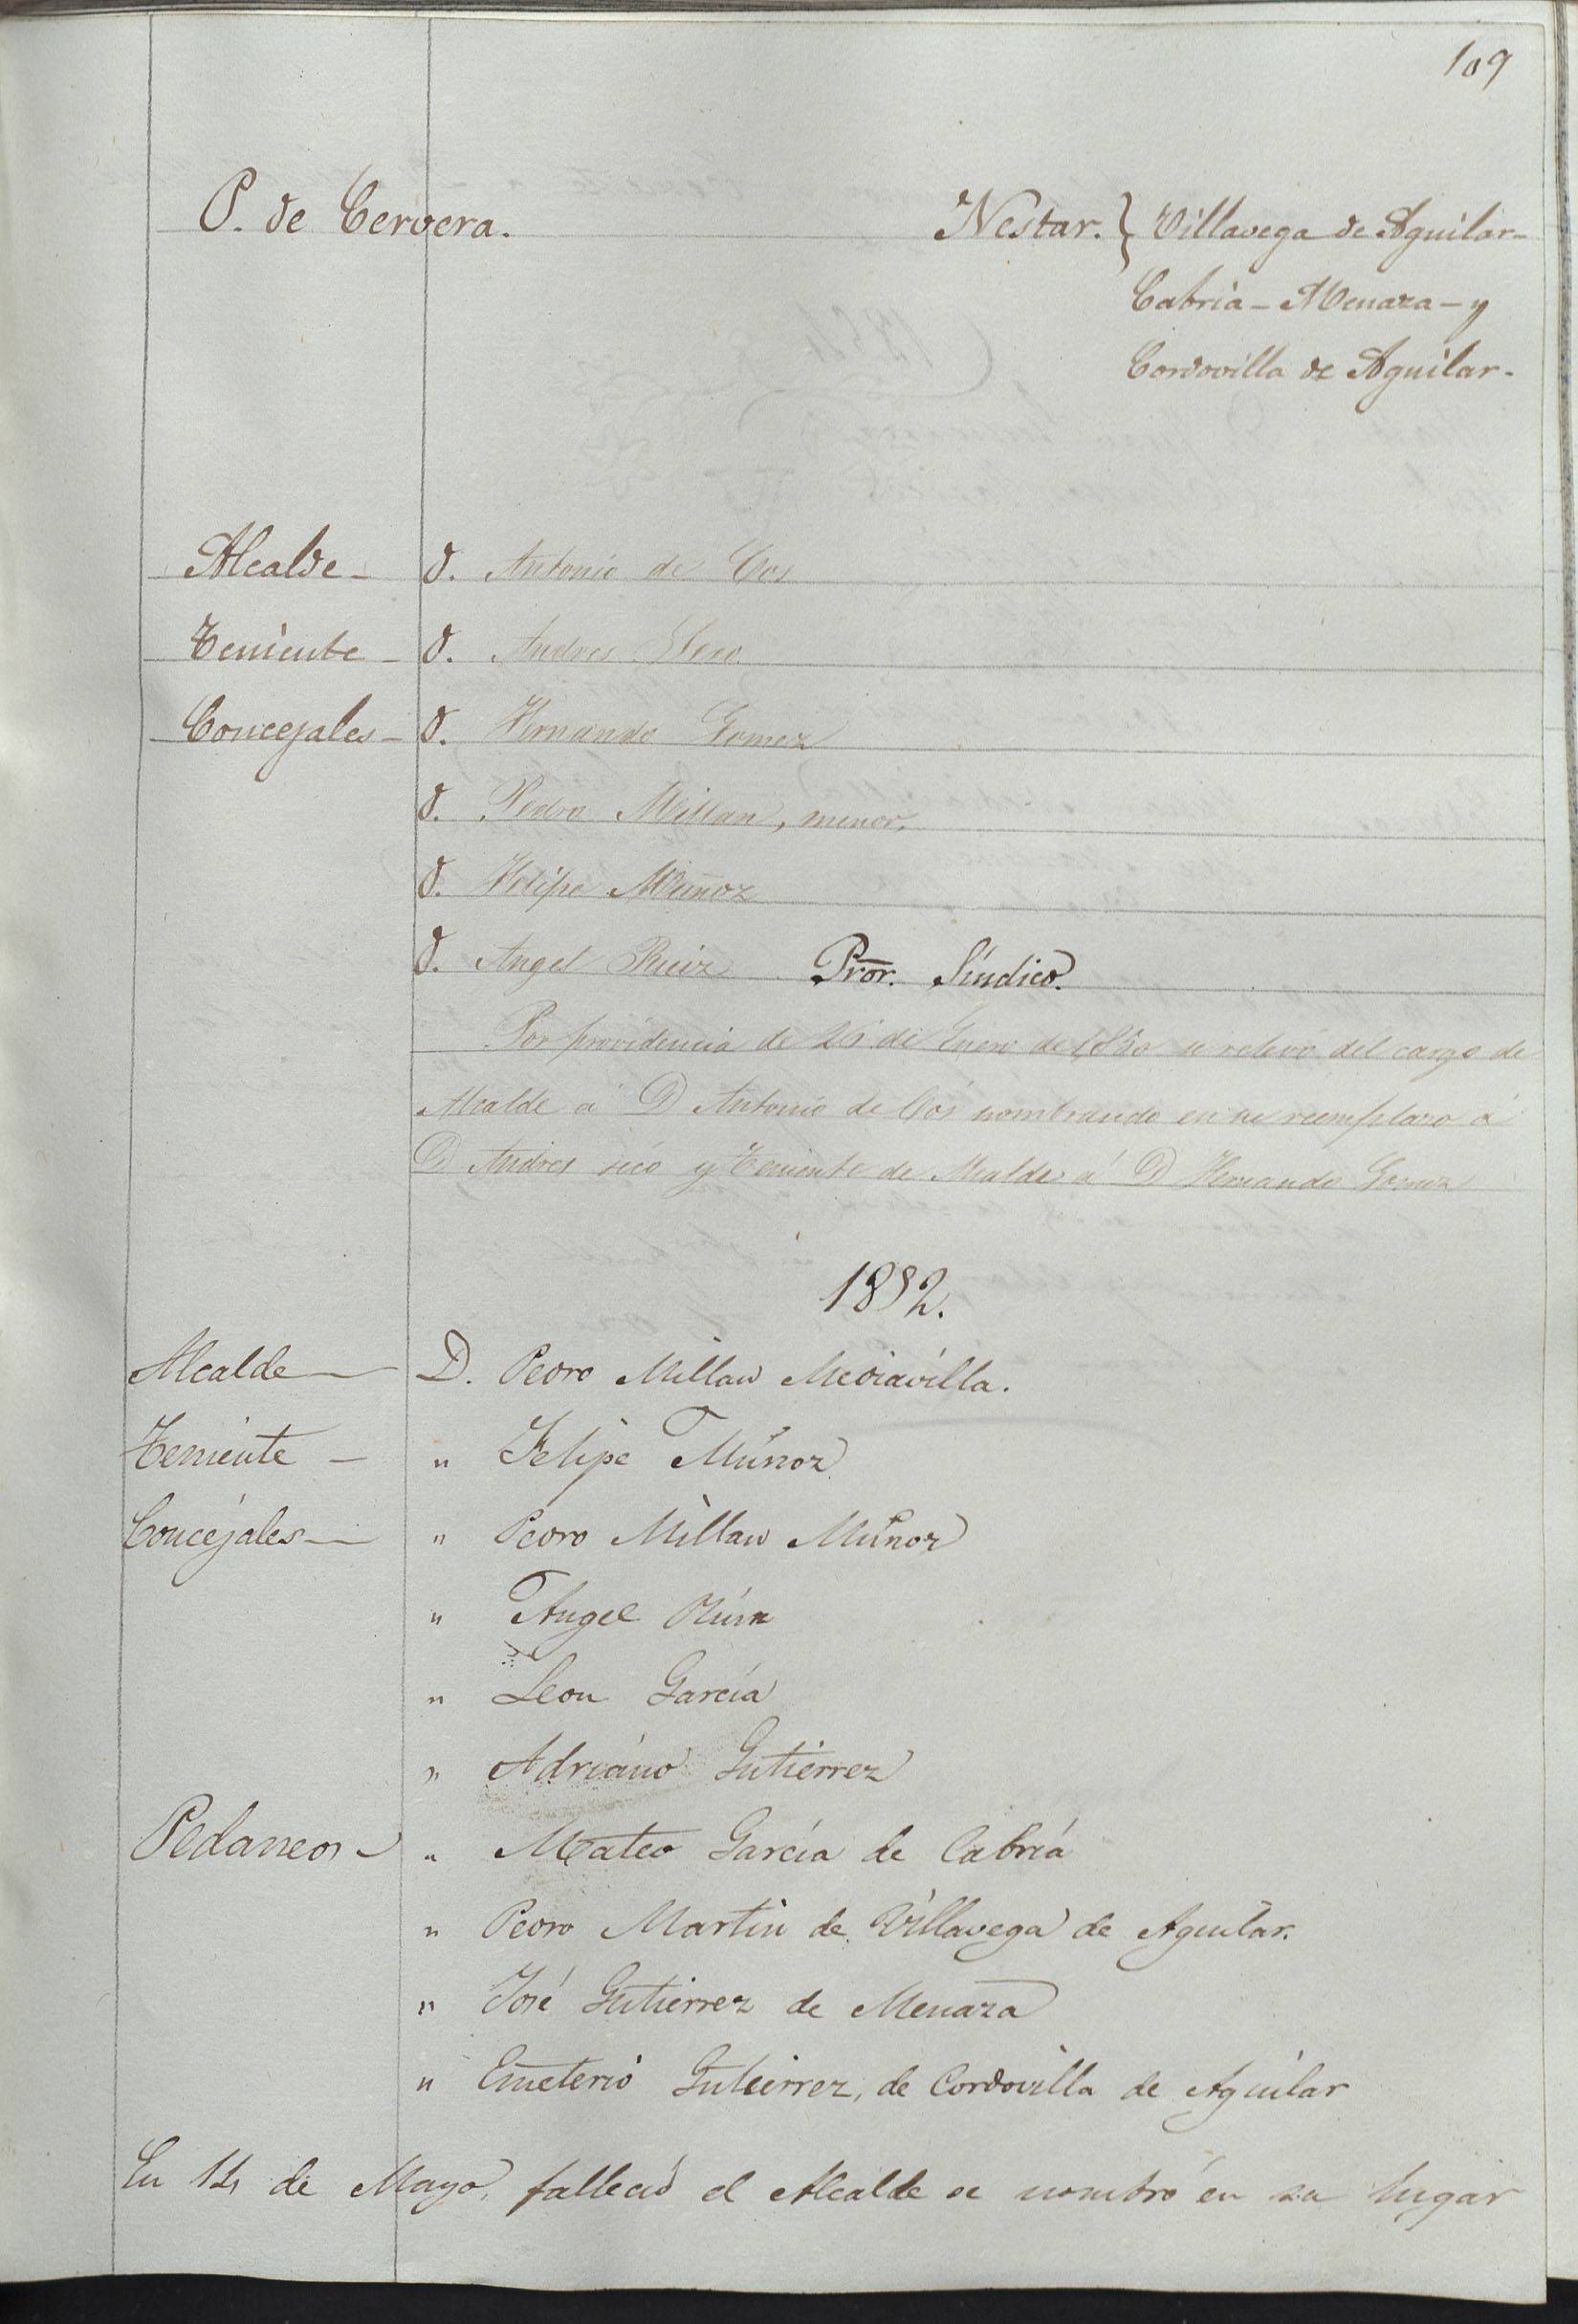 109
P. de Cervera. Nestar. } Villavega de Aguilar-
Cabria - Menaza - y
Cordovilla de Aguilar.
Alcalde - D. Antonio de Cos
Teniente - D. Andres Seco
Concejales - D. Hernando Gomez
D. Pedro Millan, menor.
D. Felipe Muñoz
D. Angel Ruiz Pror. Síndico.
Por providencia de 26 de Enero de 1850 se relevó del cargo de
Alcalde á D Antonio de Cós nombrando en su reemplazo á
D Andres seco y Teniente de Alcalde á D Hernando Gomez
1852.
Alcalde — D. Pedro Millan Mediavilla.
Teniente — " Felipe Muñoz
Concejales — " Pedro Millan Muñoz
" Angel Ruiz
" Leon García
" Adriano Gutierrez
Pedaneos - " Mateo García de Cabria
" Pedro Martin de Villavega de Aguilar.
" José Gutierrez de Menaza
" Emeterio Gutierrez, de Cordovilla de Aguilar
En 14 de Mayo, falleció el Alcalde se nombró en su lugar